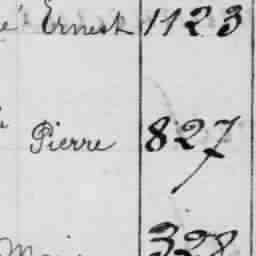 Ernest 1123
Pierre 827
328